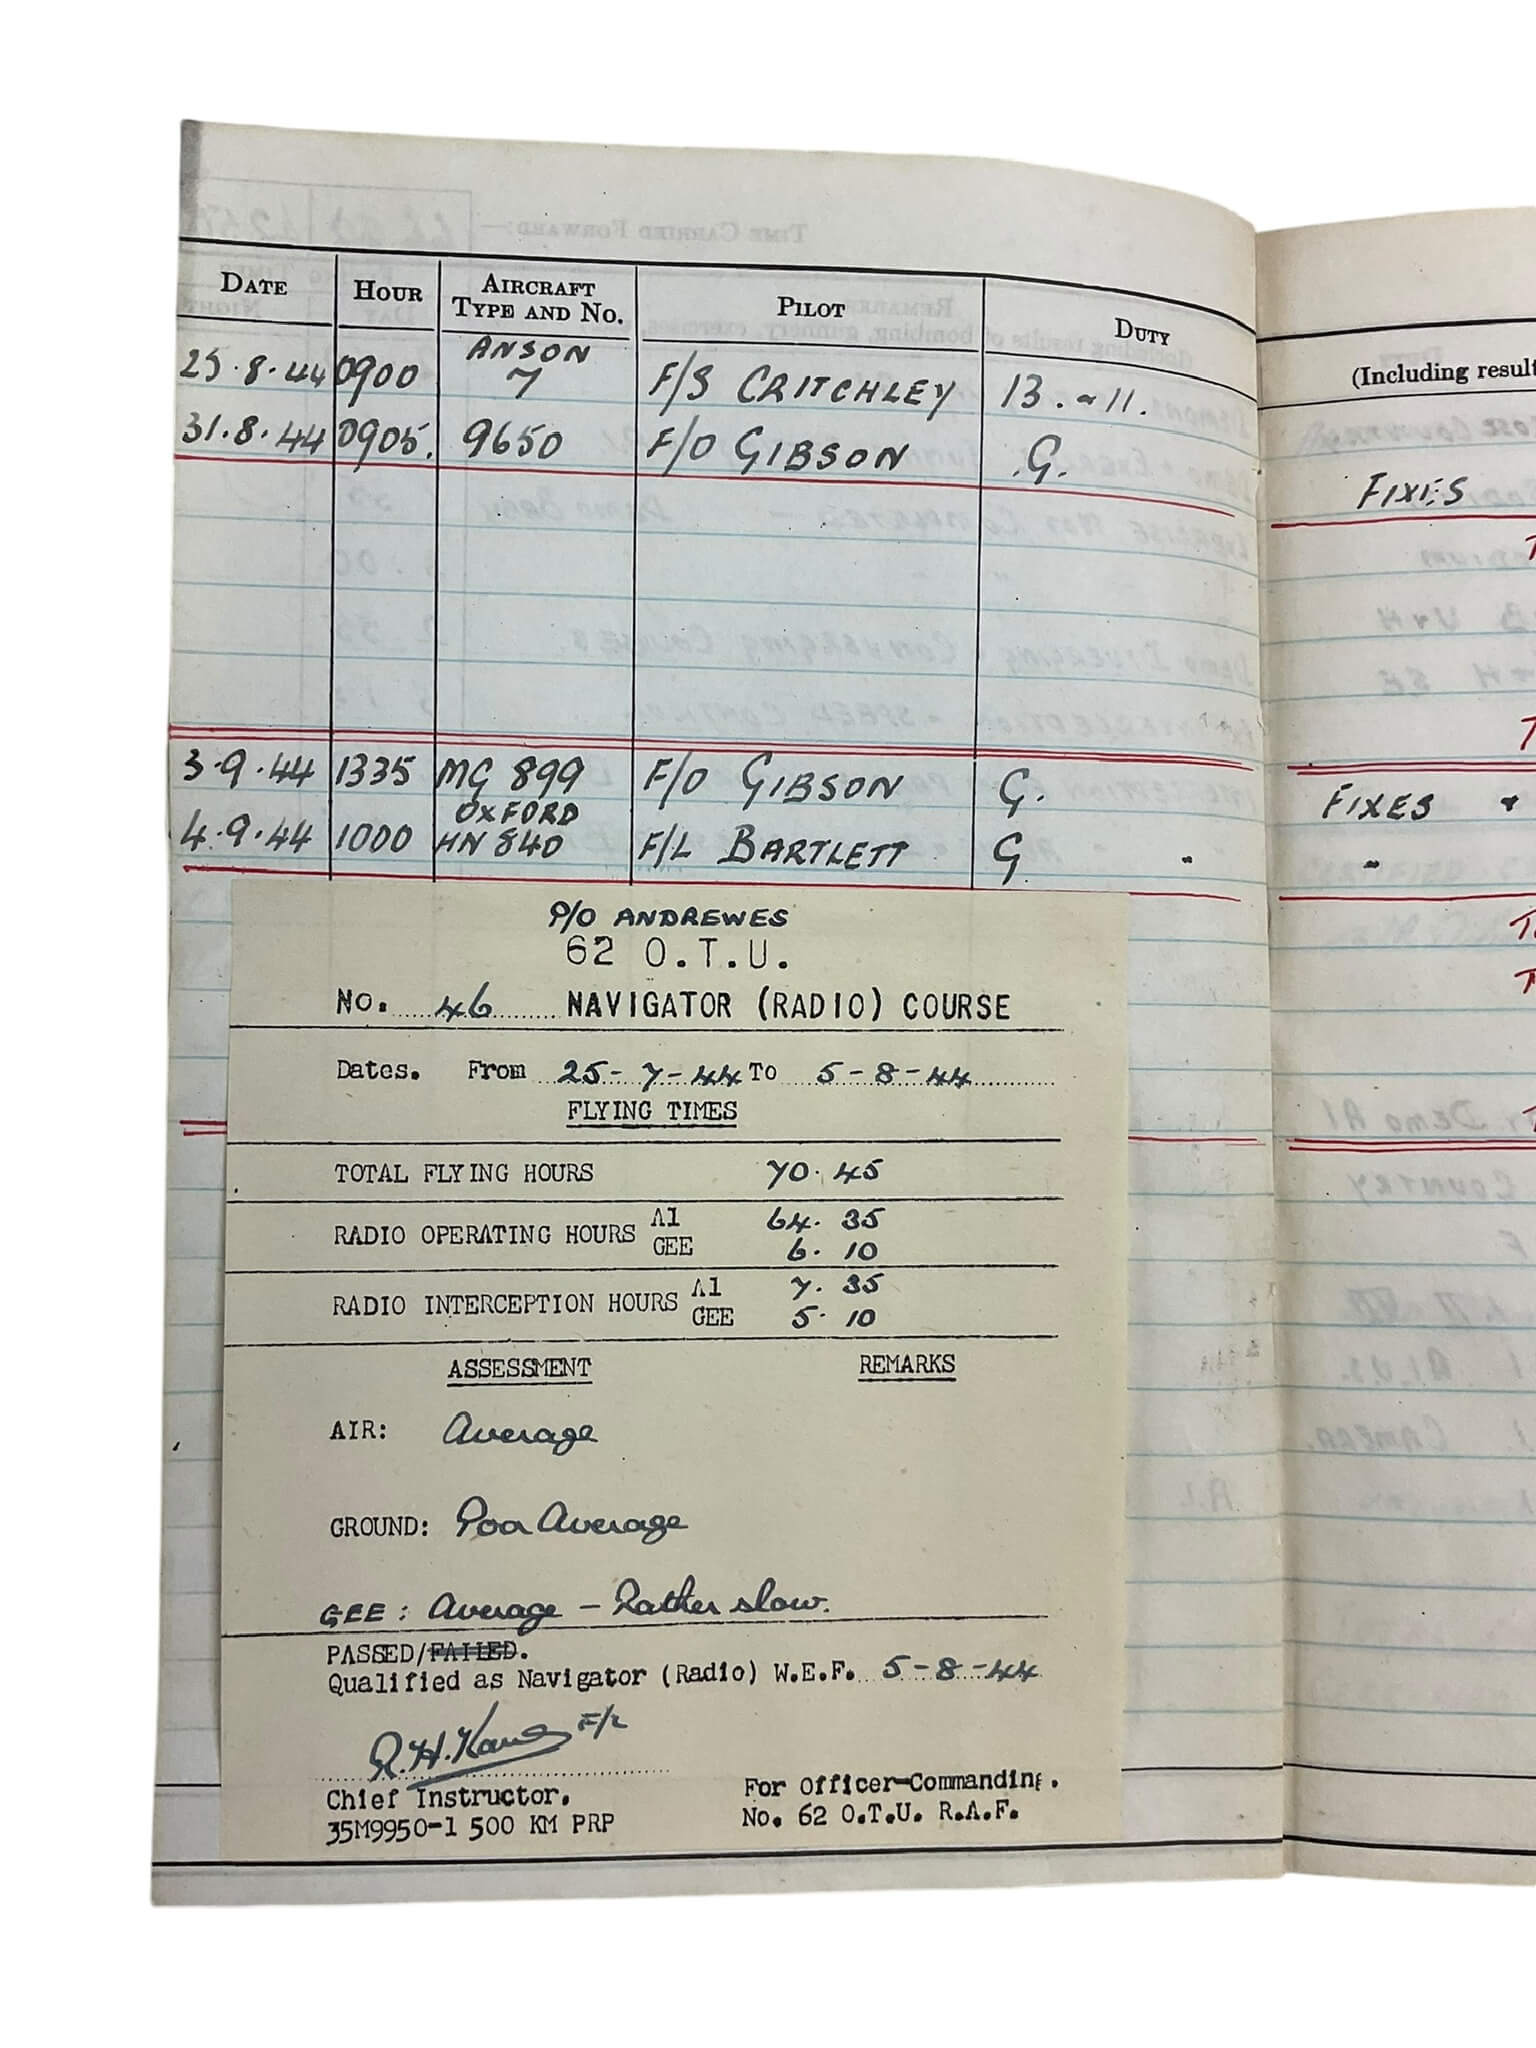 DATE HOUR AIRCRAFT TYPE AND NO. PILOT DUTY
ANSON
25.8.44 0900 7 F/S CRITCHLEY 13. & 11.
31.8.44 0905. 9650 F/O GIBSON .G.
3.9.44 1335 MG 899 F/O GIBSON G.
OXFORD
4.9.44 1000 HN 840 F/L BARTLETT G
P/O ANDREWES
62 O.T.U.
NO. 46 NAVIGATOR (RADIO) COURSE
Dates. From 25-7-44 To 5-8-44
FLYING TIMES
TOTAL FLYING HOURS 70. 45
RADIO OPERATING HOURS A1 64. 35
GEE 6. 10
RADIO INTERCEPTION HOURS A1 7. 35
GEE 5. 10
ASSESSMENT REMARKS
AIR: Average
GROUND: Poor Average
GEE: Average - Rather slow.
PASSED/FAILED.
Qualified as Navigator (Radio) W.E.F. 5-8-44
R.H. F/L
Chief Instructor. For Officer-Commanding.
35M9950-1 500 KM PRP No. 62 O.T.U. R.A.F.
(Including
FIXES
FIXES &
"